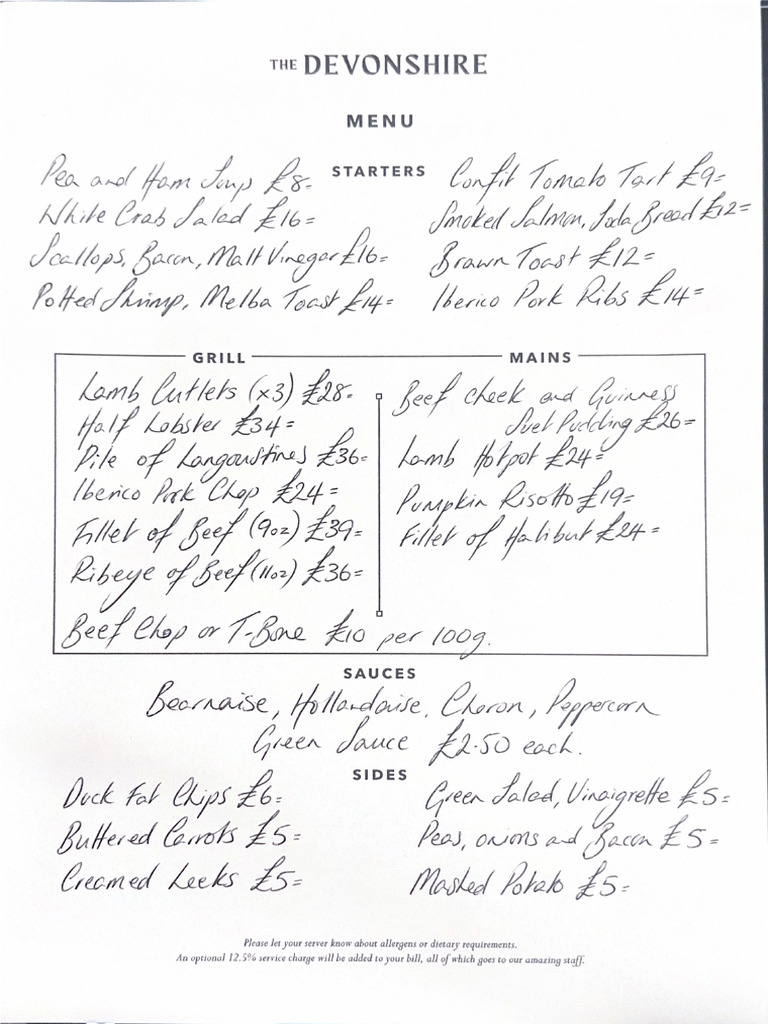 THE DEVONSHIRE
MENU
STARTERS
Pea and Ham Soup £8=
White Crab Salad £16=
Scallops, Bacon, Malt Vinegar £16=
Potted Shrimp, Melba Toast £14=
Confit Tomato Tart £9=
Smoked Salmon, Soda Bread £12=
Brawn Toast £12=
Iberico Pork Ribs £14=
GRILL
Lamb Cutlets (x3) £28=
Half Lobster £34=
Pile of Langoustines £36=
Iberico Pork Chop £24=
Fillet of Beef (9oz) £39=
Ribeye of Beef (11oz) £36=
Beef Chop or T-Bone £10 per 100g.
MAINS
Beef cheek and Guinness
Suet Pudding £26=
Lamb Hotpot £24=
Pumpkin Risotto £19=
Fillet of Halibut £24=
SAUCES
Bearnaise, Hollandaise, Choron, Peppercorn
Green Sauce £2.50 each.
SIDES
Duck Fat Chips £6=
Buttered Carrots £5=
Creamed Leeks £5=
Green Salad, Vinaigrette £5=
Peas, onions and Bacon £5=
Mashed Potato £5=
Please let your server know about allergens or dietary requirements.
An optional 12.5% service charge will be added to your bill, all of which goes to our amazing staff.